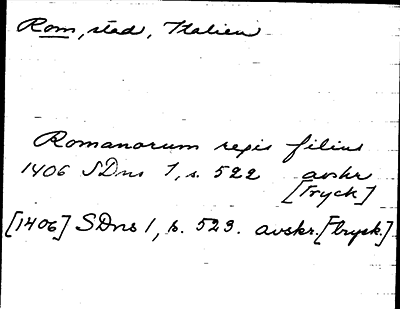 Rom, stad, Italien
Romanorum regis filius
1406 SDns 1, s. 522 avskr
[tryck]
[1406] SDns 1, s. 523. avskr. [tryck.]